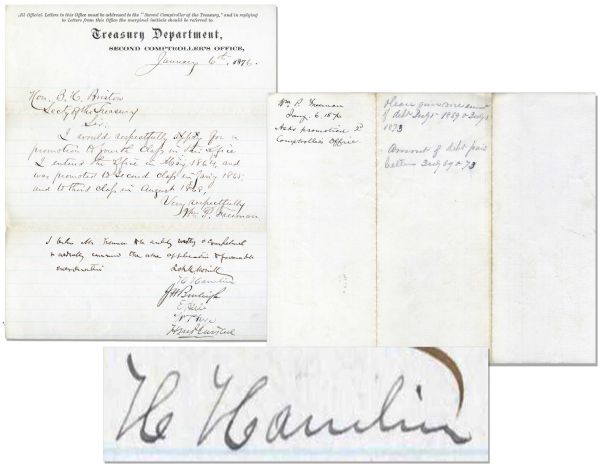 All Official Letters to this Office must be addressed to the "Second Comptroller of the Treasury," and in replying
to Letters from this Office the marginal initials should be referred to.
Treasury Department,
SECOND COMPTROLLER'S OFFICE,
January 6th, 1876.
Hon. B. H. Bristow
Secty of the Treasury
Sir:
I would respectfully apply for a
promotion to fourth class in this office
I entered the office in May 1864, and
was promoted to second class in
and to third class in August 1868,
Very respectfully
Wm P. Freeman
I believe Mr Freeman to be entirely worthy & competent
& the above application & favorable
H Hamlin
J H Burleigh
E Hale
Wm P. Freeman
Jany 6. 1876
Asks promotion 2d
Comptrollers Office
Please give me amt
of debt July 1 1869 & July 1
1873
Amount of debt paid
between July 69 & 73
H Hamlin